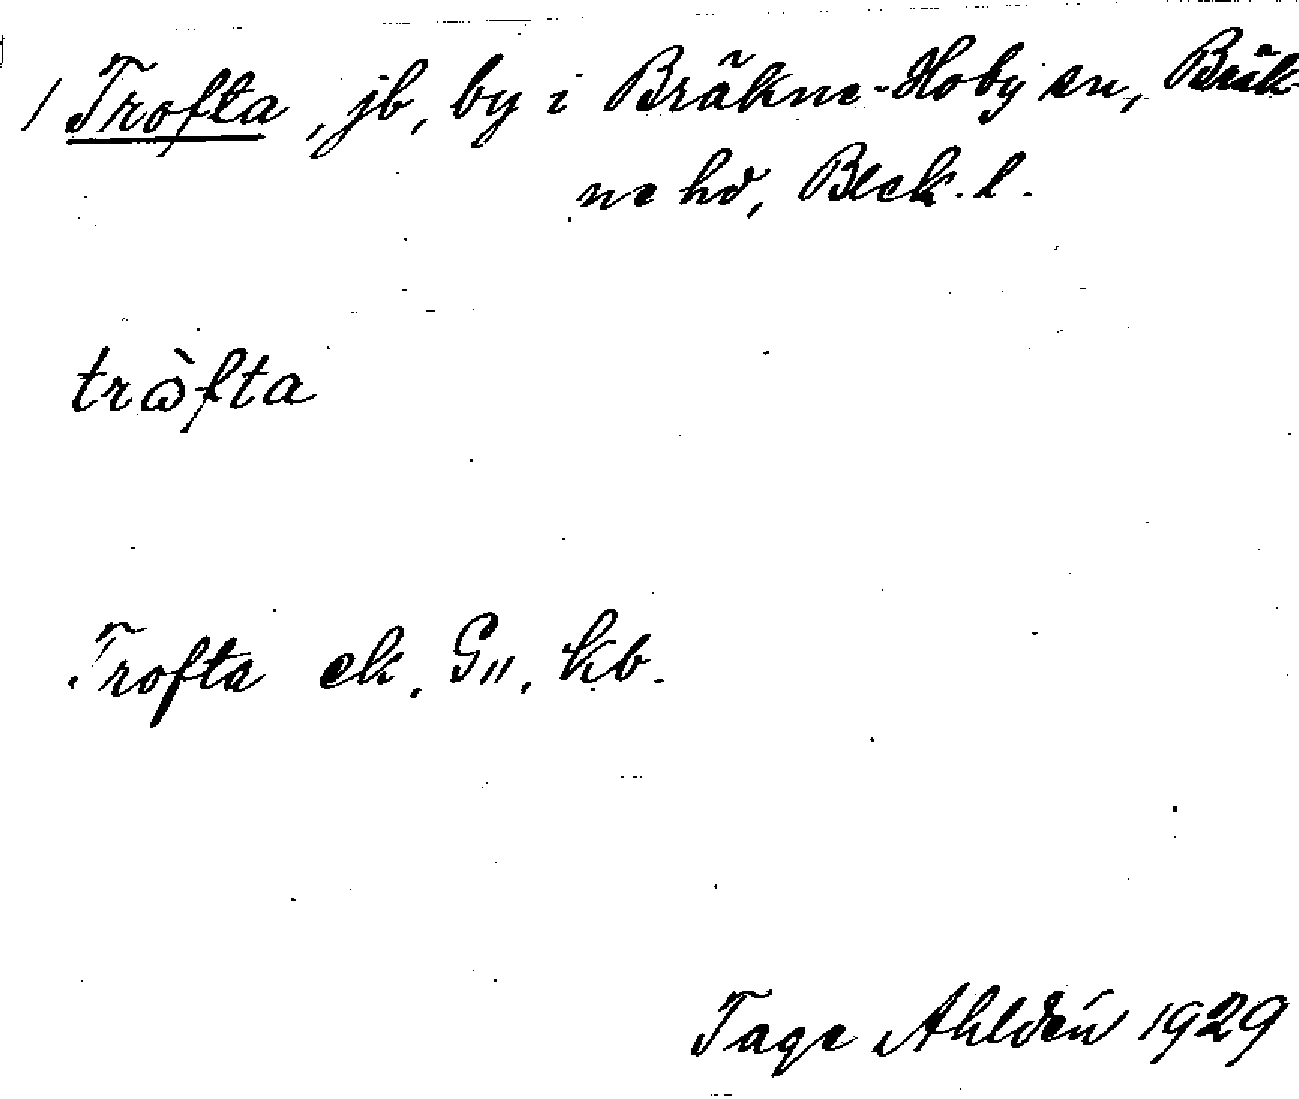 / Trofta, jb, by i Bräkne-Hoby sn, Bräk-
ne hd, Blek. l.
trɷ̀fta
Trofta ek. G11, kb.
Tage Ahldén 1929